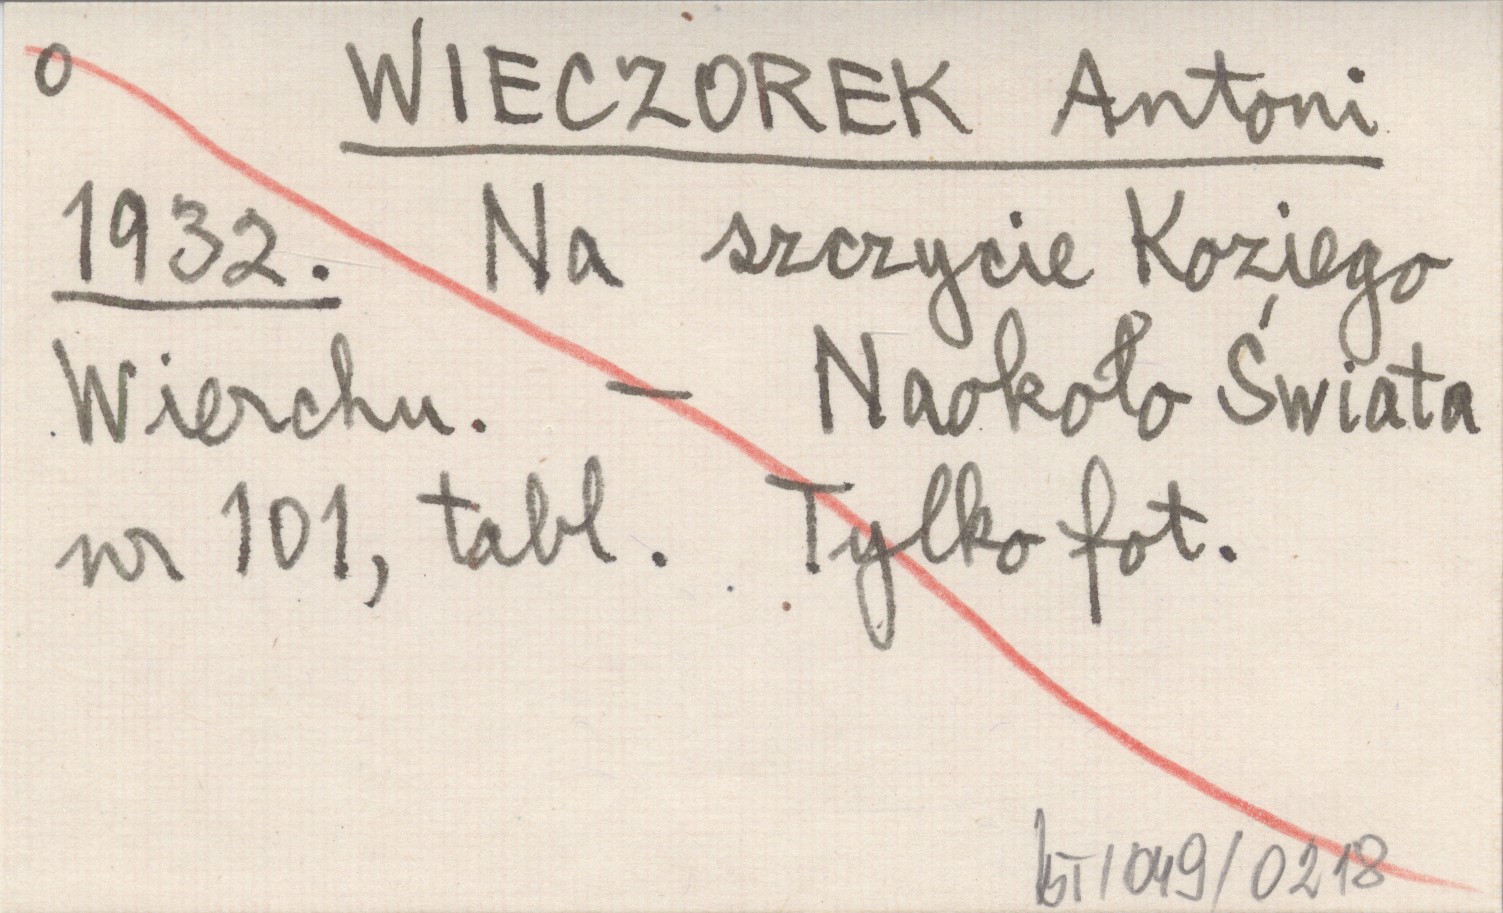 o WIECZOREK Antoni
1932. Na szczycie Koziego
Wierchu. — Naokoło Świata
nr 101, tabl. Tylko fot.
/049/0218